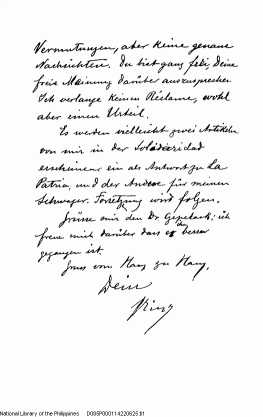 Vermutungen, aber keine genaue
Nachrichten. Du bist ganz frei, Deine
freie Meinung darüber auszusprechen
Ich verlange keinen Reclame, wohl
aber einen Urteil.
Es werden vielleicht zwei Artikeln
von mir in der Solidaridad
erscheinen ein als Antwort zu La
Patria, und der Andere für meinen
Schwager. Fortsetzung wird folgen.
Grüsse mir den Dr. ich
freue mich darüber dass es ihm besser
gegangen ist.
Gruss von Haus zu Haus,
Dein
Rizal
National Library of the Philippines D006P00011422062611